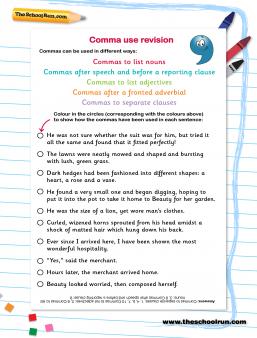 TheSchoolRun.com
Comma use revision
Commas can be used in different ways:
Commas to list nouns
Commas after speech and before a reporting clause
Commas to list adjectives
Commas after a fronted adverbial
Commas to separate clauses
Colour in the circles (corresponding with the colours above)
to show how the commas have been used in each sentence:
He was not sure whether the suit was for him, but tried it
all the same and found that it fitted perfectly!
The lawns were neatly mowed and shaped and bursting
with lush, green grass.
Dark hedges had been fashioned into different shapes: a
heart, a rose and a vase.
He found a very small one and began digging, hoping to
put it into the pot to take it home to Beauty for her garden.
He was the size of a lion, yet wore man's clothes.
Curled, wizened horns sprouted from his head amidst a
shock of matted hair which hung down his back.
Ever since I arrived here, I have been shown the most
wonderful hospitality.
"Yes," said the merchant.
Hours later, the merchant arrived home.
Beauty looked worried, then composed herself.
www.theschoolrun.com